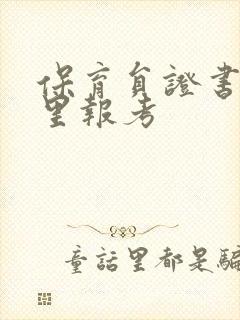 保育员證書
里報考
童話里都是騙